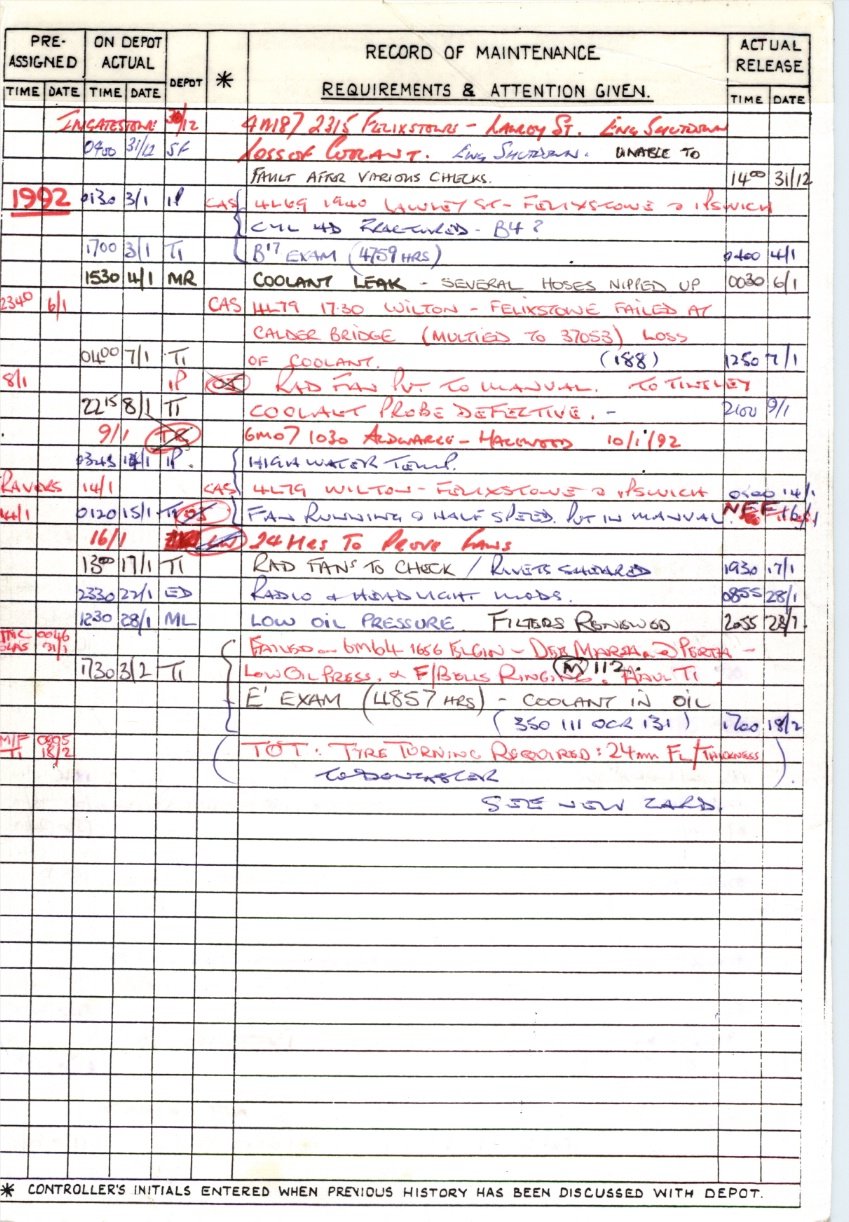 PRE-ASSIGNED ON DEPOT ACTUAL DEPOT * RECORD OF MAINTENANCE REQUIREMENTS & ATTENTION GIVEN. ACTUAL RELEASE
TIME DATE TIME DATE TIME DATE
INGATESTONE /12 4M87 2315 FELIXSTOWE - LAWLEY ST. ENG SHUTDOWN
0400 31/12 SF LOSS OF COOLANT. ENG SHUTDOWN. UNABLE TO
FAULT AFTER VARIOUS CHECKS. 1400 31/12
1992 0130 3/1 IP CAS 4L69 1940 LAWLEY ST - FELIXSTOWE @ IPSWICH
CYL HD FRACTURED - B4?
1700 3/1 TI B17 EXAM (4759 HRS) 0400 4/1
1530 4/1 MR COOLANT LEAK - SEVERAL HOSES NIPPED UP 0030 6/1
2340 6/1 CAS 4L79 17.30 WILTON - FELIXSTOWE FAILED AT
CALDER BRIDGE (MULTIED TO 37053) LOSS
0400 7/1 TI OF COOLANT. (188) 1250 7/1
8/1 IP RAD FAN PUT TO MANUAL. TO TINSLEY
2215 8/1 TI COOLANT PROBE DEFECTIVE. - 2100 9/1
9/1 6M07 1030 ALDWARKE - HALEWOOD 10/1/92
IP. HIGH WATER TEMP.
14/1 CAS 4L79 WILTON - FELIXSTOWE @ IPSWICH 14/1
14/1 0120 15/1 TI FAN RUNNING @ HALF SPEED. PUT IN MANUAL. NEF
16/1 24 HRS TO PROVE
1300 17/1 TI RAD FANS TO CHECK / RIVETS SHEARED 1930 17/1
2330 27/1 ED RADIO & HEADLIGHT MODS. 0855 28/1
1230 28/1 ML LOW OIL PRESSURE. FILTERS RENEWED 2055 28/1
0046 31/1 FAILED 6M64 1656 ELGIN - DEE MARSH @ PERTH -
1730 3/2 TI LOW OIL PRESS. & F/BELLS RINGING. M 112. TI
E' EXAM (4857 HRS) - COOLANT IN OIL
(350 111 OCR 131) 1700 18/2
TI 18/2 (TOT: TYRE TURNING REQUIRED: 24mm FL/THICKNESS
TO DONCASTER).
SEE NEW CARD.
* CONTROLLER'S INITIALS ENTERED WHEN PREVIOUS HISTORY HAS BEEN DISCUSSED WITH DEPOT.